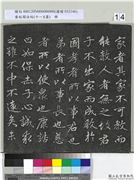 14
家者其家不可教而
能教人者無之故君
子不出家而成教於
國孝者所以事君也
弟者所以事長也慈
者所以使衆也康誥
曰如保赤子心誠求
之雖不中不遠矣未